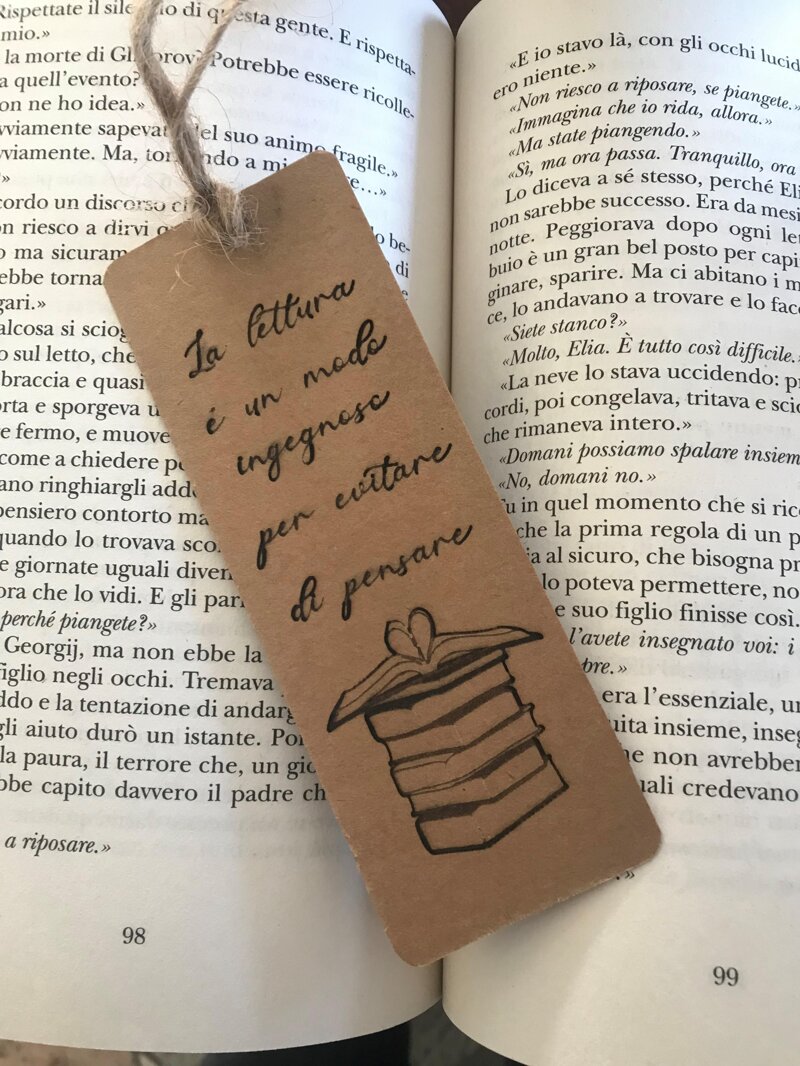 Rispettate il
di questa gente. E rispetta-
mio.»
la morte di
Potrebbe essere ricolle-
a quell'evento?
non ne ho idea.»
ovviamente sapevat
del suo animo fragile.»
vviamente. Ma,
a
ricordo un discorso
be-
non riesco a dirvi
ma
di
ebbe
qualcosa si
sul letto, che
braccia e quasi
e sporgeva
fermo, e muove
come a chiedere
ringhiargli
pensiero contorto
quando lo trovava
giornate uguali
ora che lo vidi. E gli
perché piangete?»
Georgij, ma non ebbe la
figlio negli occhi. Tremava
e la tentazione di
gli aiuto durò un istante.
la paura, il terrore che, un
capito davvero il padre
a riposare.»
98
La lettura
é un modo
ingegnoso
per evitare
di pensare
«E io stavo là, con gli occhi lucid
ero niente.»
«Non riesco a riposare, se piangete.»
«Immagina che io rida, allora.»
«Ma state piangendo.»
«Sì, ma ora passa. Tranquillo, ora
Lo diceva a sé stesso, perché Eli
non sarebbe successo. Era da mesi
notte. Peggiorava dopo ogni let
buio è un gran bel posto per capi
ginare, sparire. Ma ci abitano i m
ce, lo andavano a trovare e lo face
«Siete stanco?»
«Molto, Elia. È tutto così difficile.»
«La neve lo stava uccidendo: pr
cordi, poi congelava, tritava e scio
che rimaneva intero.»
«Domani possiamo spalare insiem
«No, domani no.»
Fu in quel momento che si rico
che la prima regola di un p
al sicuro, che bisogna pr
lo poteva permettere, no
e suo figlio finisse così.
l'avete insegnato voi: i
era l'essenziale, un
insieme, inseg
non avrebber
credevano
99